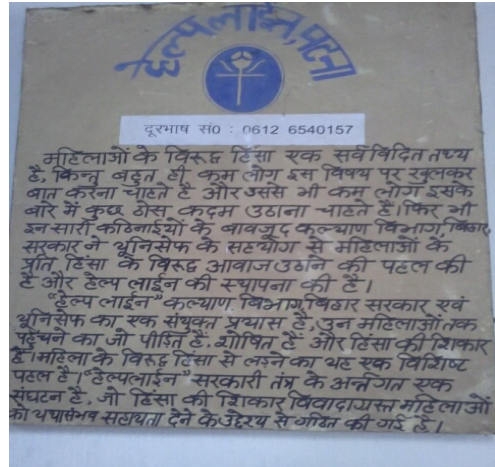 हेल्प लाईन, पटना
दूरभाष सं0 : 0612 6540157
महिलाओं के विरूद्ध हिंसा एक सर्वविदित तथ्य
है, किन्तु बहुत ही कम लोग इस विषय पर खुलकर
बात करना चाहते है और उससे भी कम लोग इसके
बारे में कुछ ठोस कदम उठाना चाहते हैं। फिर भी
इन सारी कठिनाईयों के बावजूद कल्याण विभाग, बिहार
सरकार ने यूनिसेफ के सहयोग से महिलाओं के
प्रति हिंसा के विरूद्ध आवाज उठाने की पहल की
है और हेल्प लाईन की स्थापना की है।
"हेल्प लाईन" कल्याण विभाग, बिहार सरकार एवं
यूनिसेफ का एक संयुक्त प्रयास है, उन महिलाओं तक
पहुँचने का जो पीड़ित हैं, शोषित हैं और हिंसा की शिकार
हैं। महिला के विरूद्ध हिंसा से लड़ने का यह एक विशिष्ट
पहल है। "हेल्पलाईन" सरकारी तंत्र के अर्न्तगत एक
संघटन है, जो हिंसा की शिकार विवादाग्रस्त महिलाओं
को यथासंभव सहायता देने के उद्देश्य से गठित की गई है।